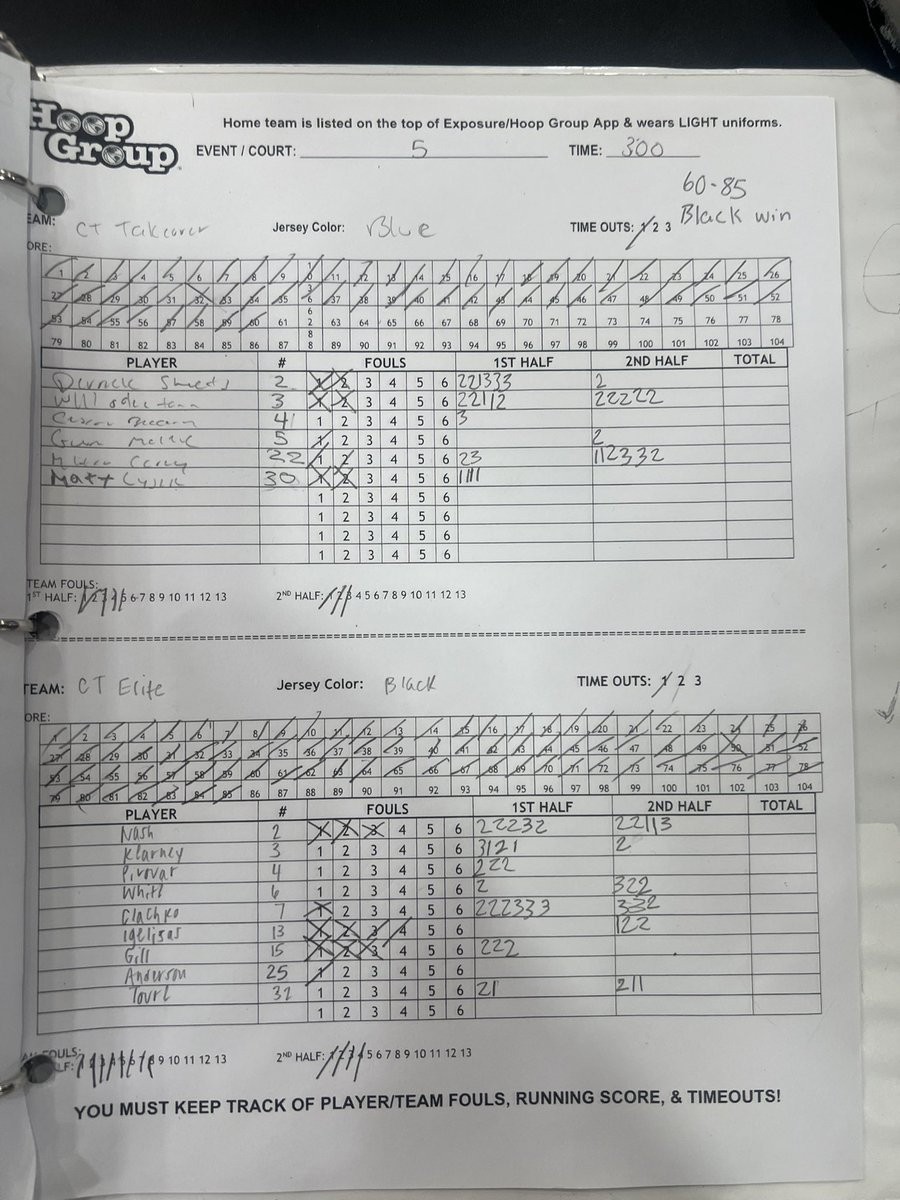 Hoop Group
Home team is listed on the top of Exposure/Hoop Group App & wears LIGHT uniforms.
EVENT / COURT: 5 TIME: 300
60-85
Black win
EAM: CT Takeover Jersey Color: Blue TIME OUTS: 1 2 3
ORE:
1 2 3 4 5 6 7 8 9 10 11 12 13 14 15 16 17 18 19 20 21 22 23 24 25 26
27 28 29 30 31 32 33 34 35 36 37 38 39 40 41 42 43 44 45 46 47 48 49 50 51 52
53 54 55 56 57 58 59 60 61 62 63 64 65 66 67 68 69 70 71 72 73 74 75 76 77 78
79 80 81 82 83 84 85 86 87 88 89 90 91 92 93 94 95 96 97 98 99 100 101 102 103 104
PLAYER # FOULS 1ST HALF 2ND HALF TOTAL
2 1 2 3 4 5 6 221333 2
Will 3 1 2 3 4 5 6 22112 22222
41 1 2 3 4 5 6 3
5 1 2 3 4 5 6 2
22 1 2 3 4 5 6 23 112332
Matt 30 1 2 3 4 5 6 1111
1 2 3 4 5 6
1 2 3 4 5 6
1 2 3 4 5 6
1 2 3 4 5 6
TEAM FOULS:
1ST HALF: 1 2 3 4 5 6 7 8 9 10 11 12 13 2ND HALF: 1 2 3 4 5 6 7 8 9 10 11 12 13
TEAM: CT Elite Jersey Color: Black TIME OUTS: 1 2 3
ORE:
1 2 3 4 5 6 7 8 9 10 11 12 13 14 15 16 17 18 19 20 21 22 23 24 25 26
27 28 29 30 31 32 33 34 35 36 37 38 39 40 41 42 43 44 45 46 47 48 49 50 51 52
53 54 55 56 57 58 59 60 61 62 63 64 65 66 67 68 69 70 71 72 73 74 75 76 77 78
79 80 81 82 83 84 85 86 87 88 89 90 91 92 93 94 95 96 97 98 99 100 101 102 103 104
PLAYER # FOULS 1ST HALF 2ND HALF TOTAL
Nash 2 1 2 3 4 5 6 22232 22113
Klarney 3 1 2 3 4 5 6 3121 2
Pirovar 4 1 2 3 4 5 6 222
Whitl 6 1 2 3 4 5 6 2 322
Clachko 7 1 2 3 4 5 6 222333 332
13 1 2 3 4 5 6 122
Gill 15 1 2 3 4 5 6 222
Anderson 25 1 2 3 4 5 6
Tourl 32 1 2 3 4 5 6 21 211
1 2 3 4 5 6
FOULS:
LF: 1 2 3 4 5 6 7 8 9 10 11 12 13 2ND HALF: 1 2 3 4 5 6 7 8 9 10 11 12 13
YOU MUST KEEP TRACK OF PLAYER/TEAM FOULS, RUNNING SCORE, & TIMEOUTS!